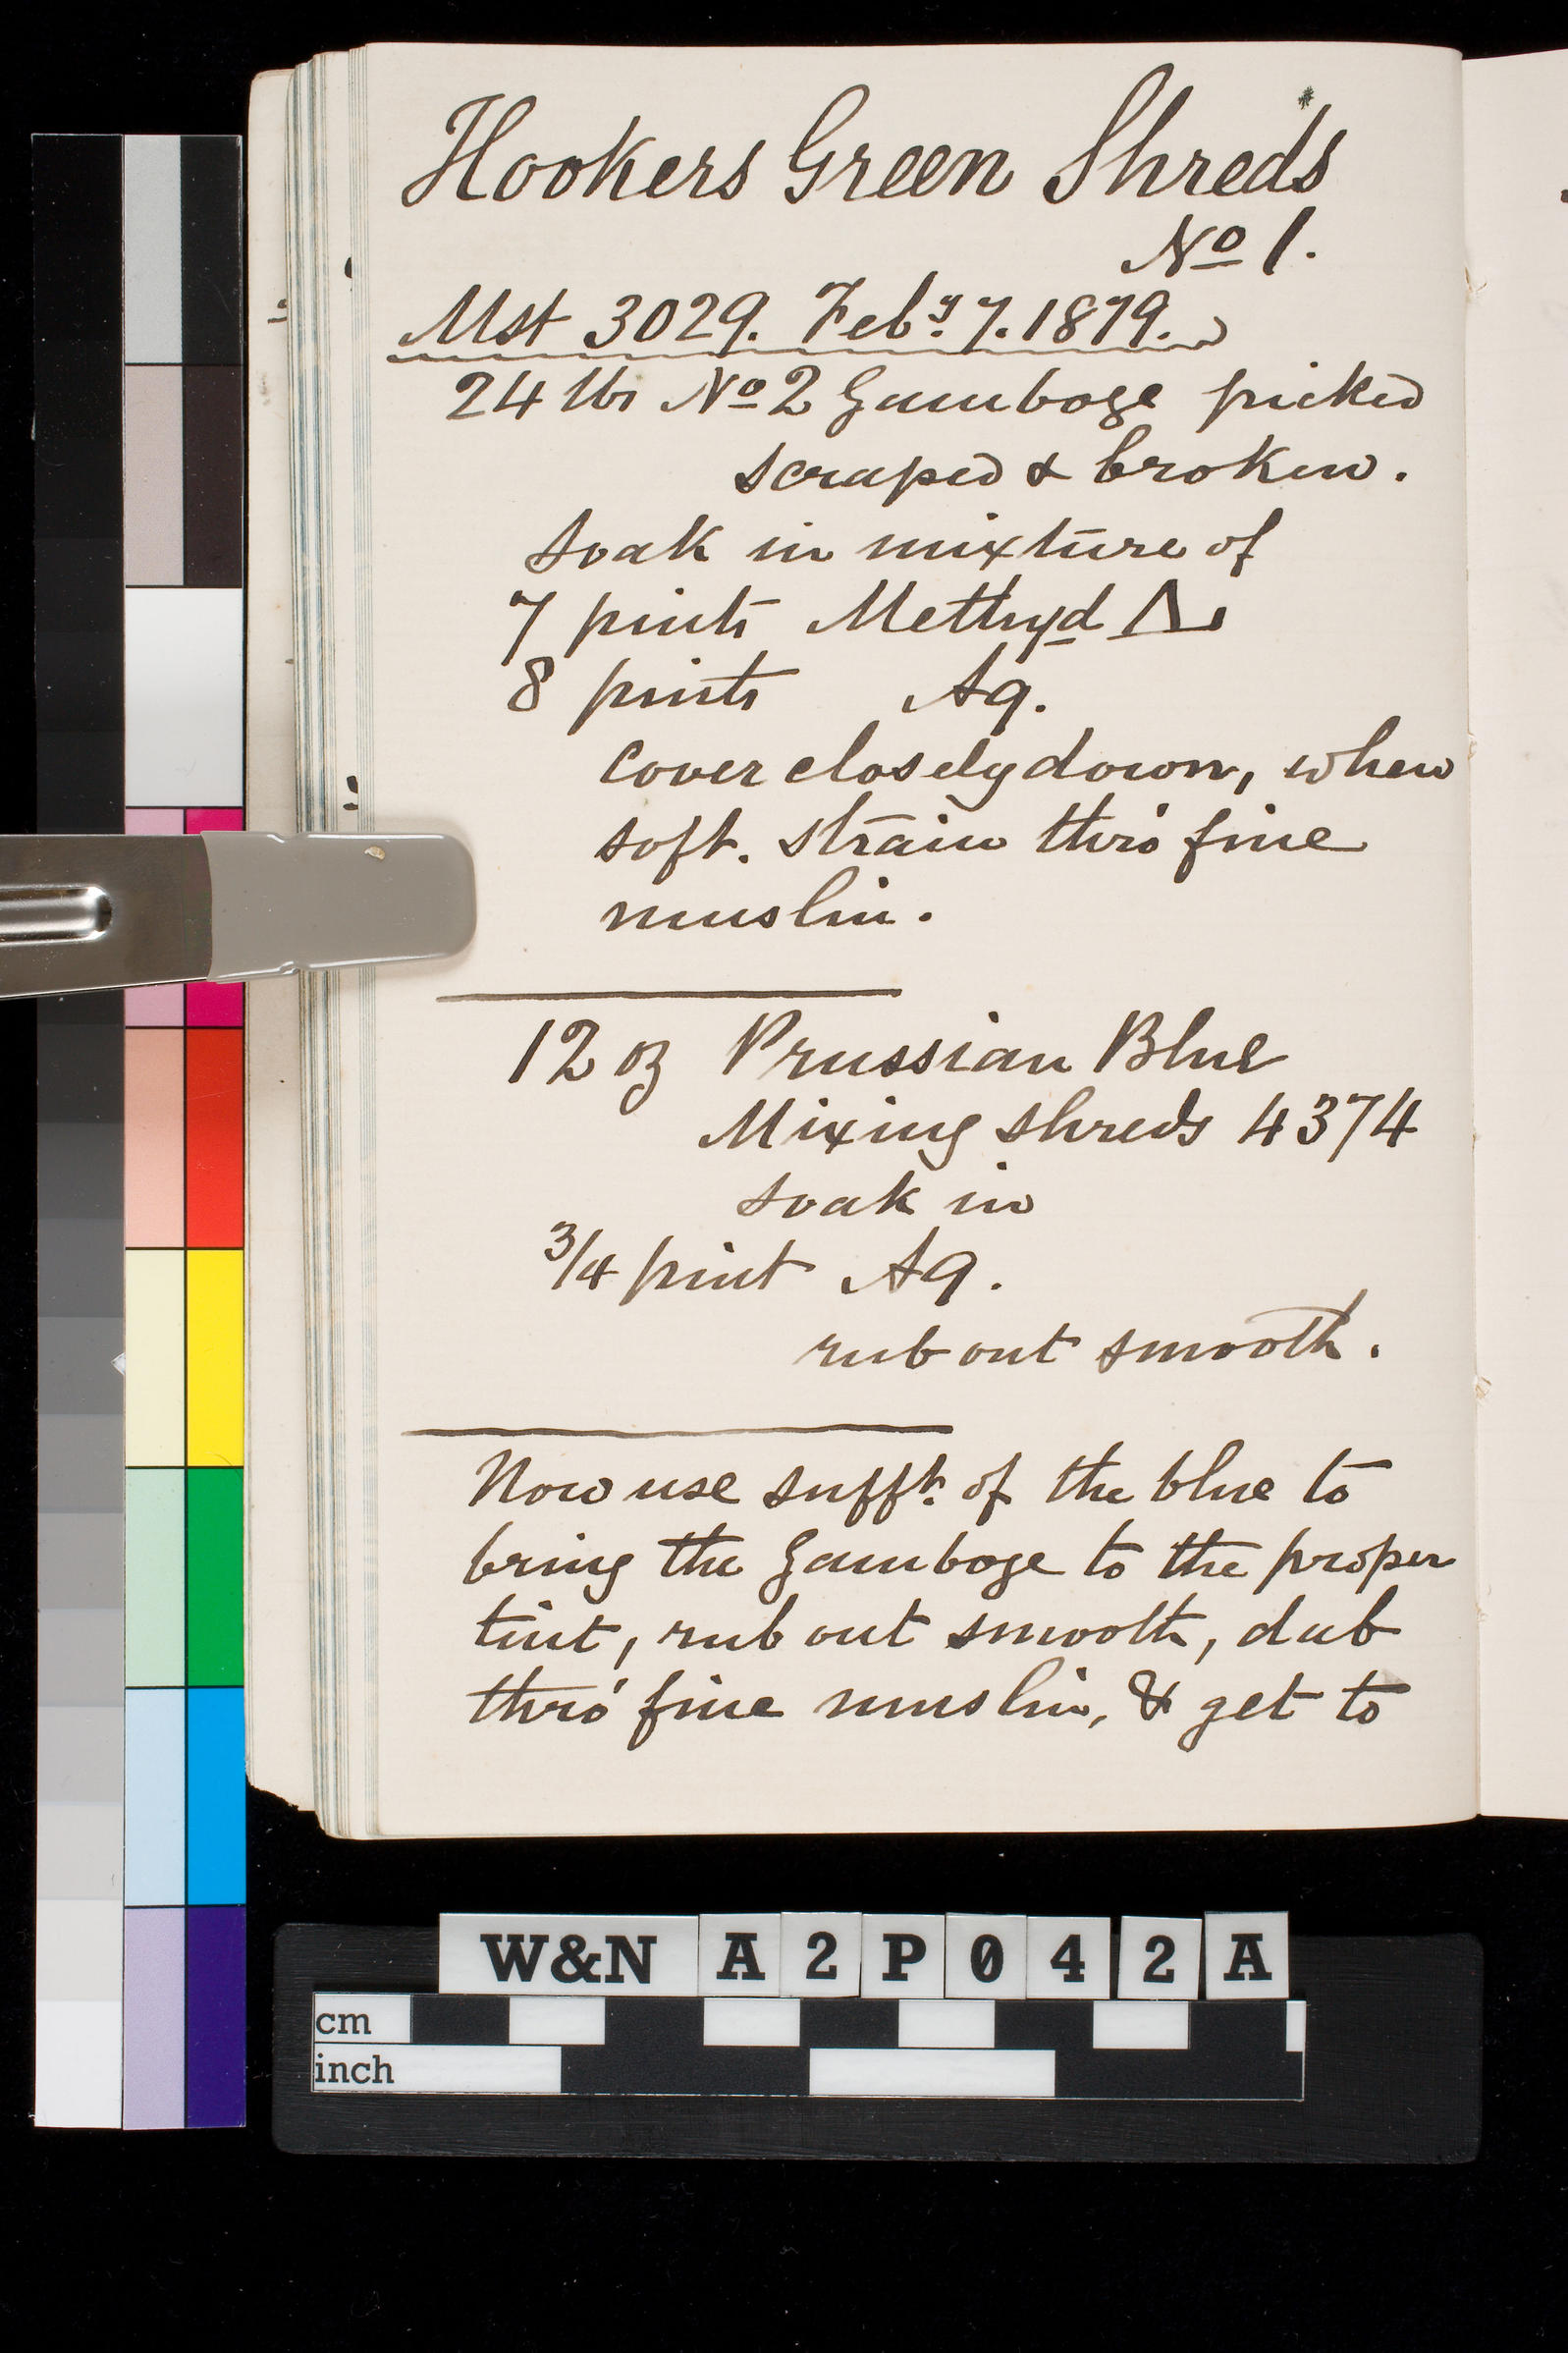 Hookers Green Shreds
No 1.
Mst 3029. Feby 7. 1879.
24 lbs No 2 Gamboge picked
scraped & broken.
soak in mixture of
7 pints Methyd Δ
8 pints Aq.
Cover closely down, when
soft. strain thro' fine
muslin.
12 oz Prussian Blue
Mixing shreds 4374
soak in
3/4 pint Aq.
rub out smooth.
Now use sufft. of the blue to
bring the Gamboge to the proper
tint, rub out smooth, dab
thro' fine muslin, & get to
W&N A2P042A
cm
inch